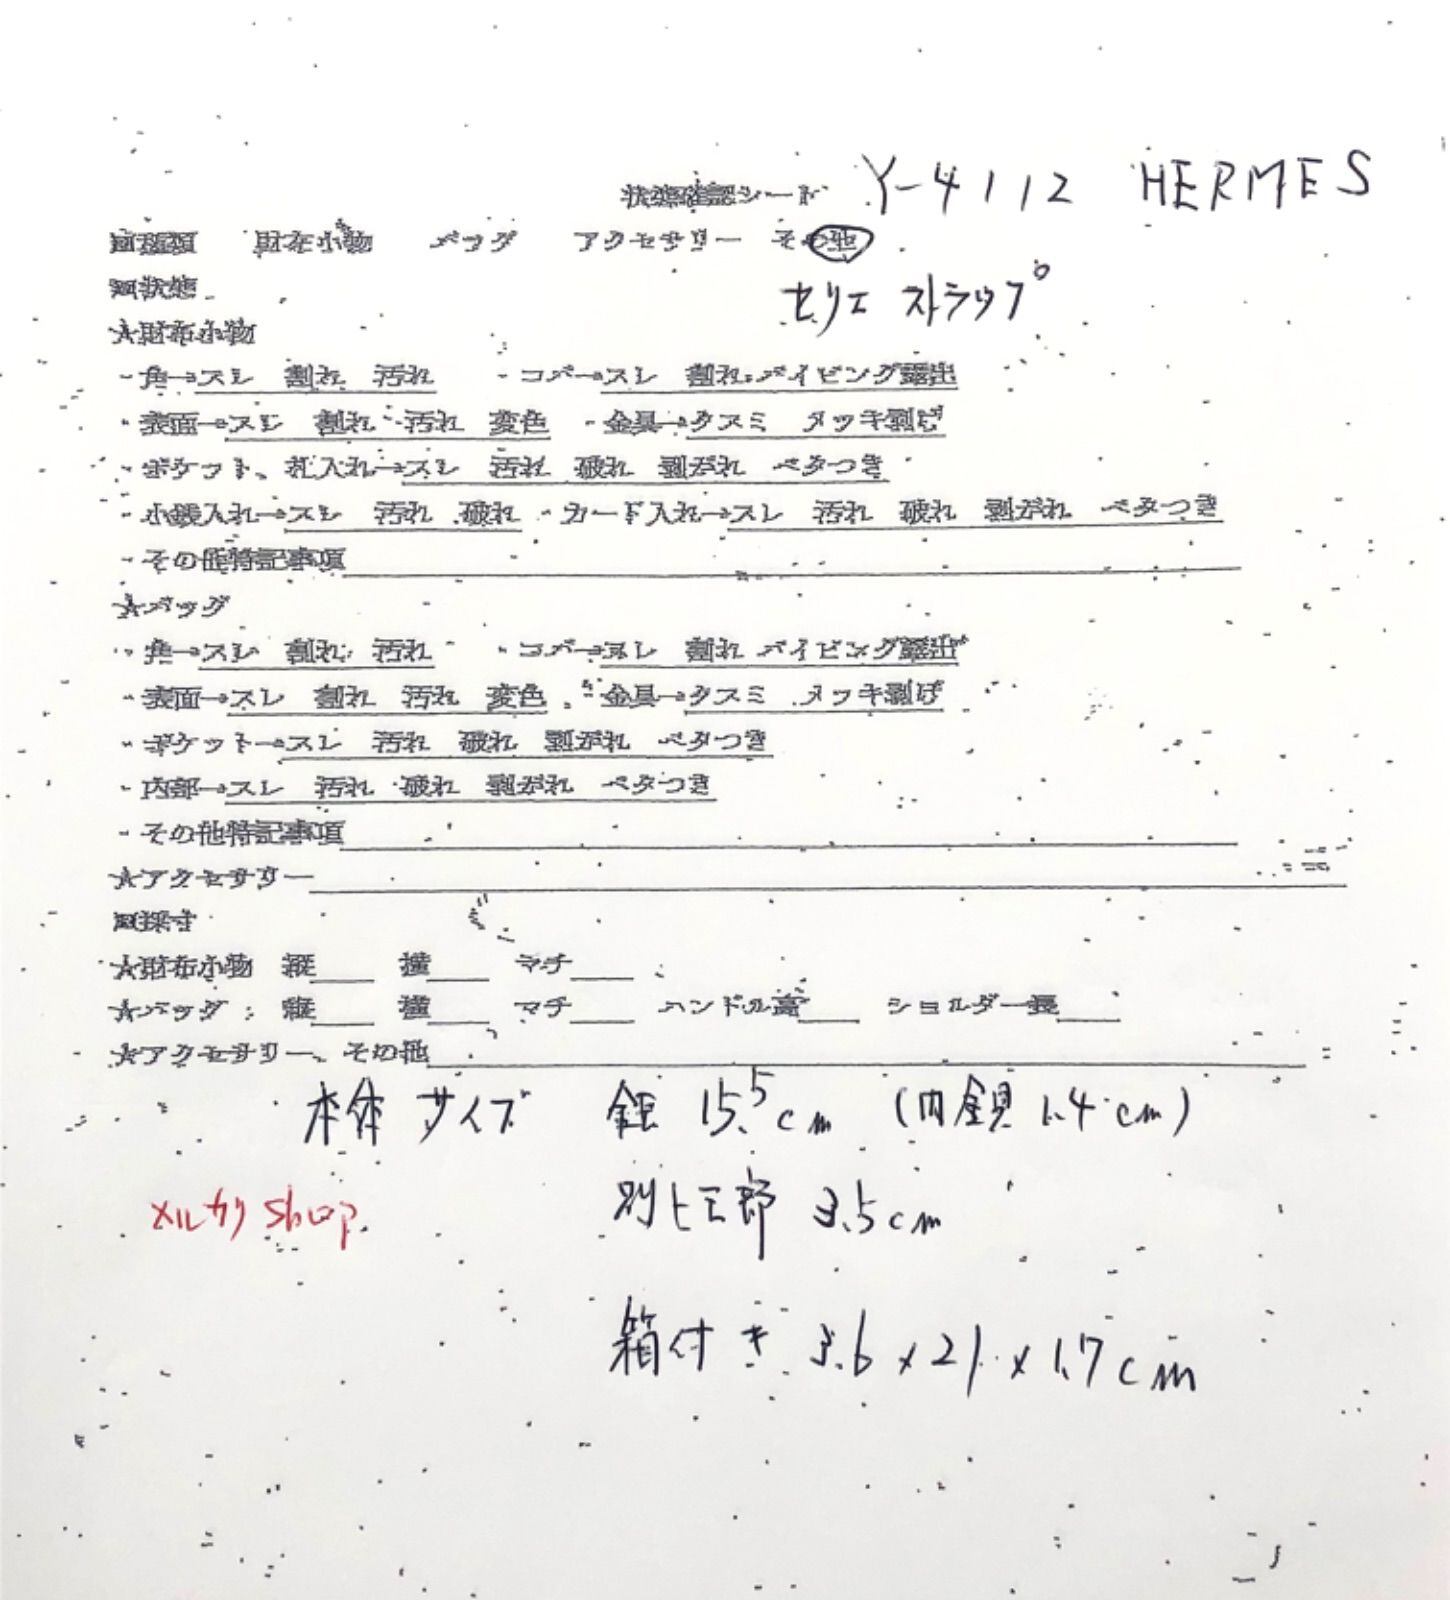 状態確認シート Y-4112 HERMES
□種類 財布小物 バッグ アクセサリー その他
□状態 セリエ ストラップ
★財布小物
・角→スレ 割れ 汚れ ・コバ→スレ 割れ パイピング露出
・表面→スレ 割れ 汚れ 変色 ・金具→クスミ メッキ剥げ
・ポケット、札入れ→スレ 汚れ 破れ 剥がれ ベタつき
・小銭入れ→スレ 汚れ 破れ ・カード入れ→スレ 汚れ 破れ 剥がれ ベタつき
・その他特記事項
★バッグ
・角→スレ 割れ 汚れ ・コバ→スレ 割れ パイピング露出
・表面→スレ 割れ 汚れ 変色 ・金具→クスミ メッキ剥げ
・ポケット→スレ 汚れ 破れ 剥がれ ベタつき
・内部→スレ 汚れ 破れ 剥がれ ベタつき
・その他特記事項
★アクセサリー
□採寸
★財布小物 縦 横 マチ
★バッグ 縦 横 マチ ハンドル高 ショルダー長
★アクセサリー、その他
本体 サイズ 15.5cm (内 1.4cm)
3.5cm
メルカリ shop
箱付き 3.6×21×1.7cm